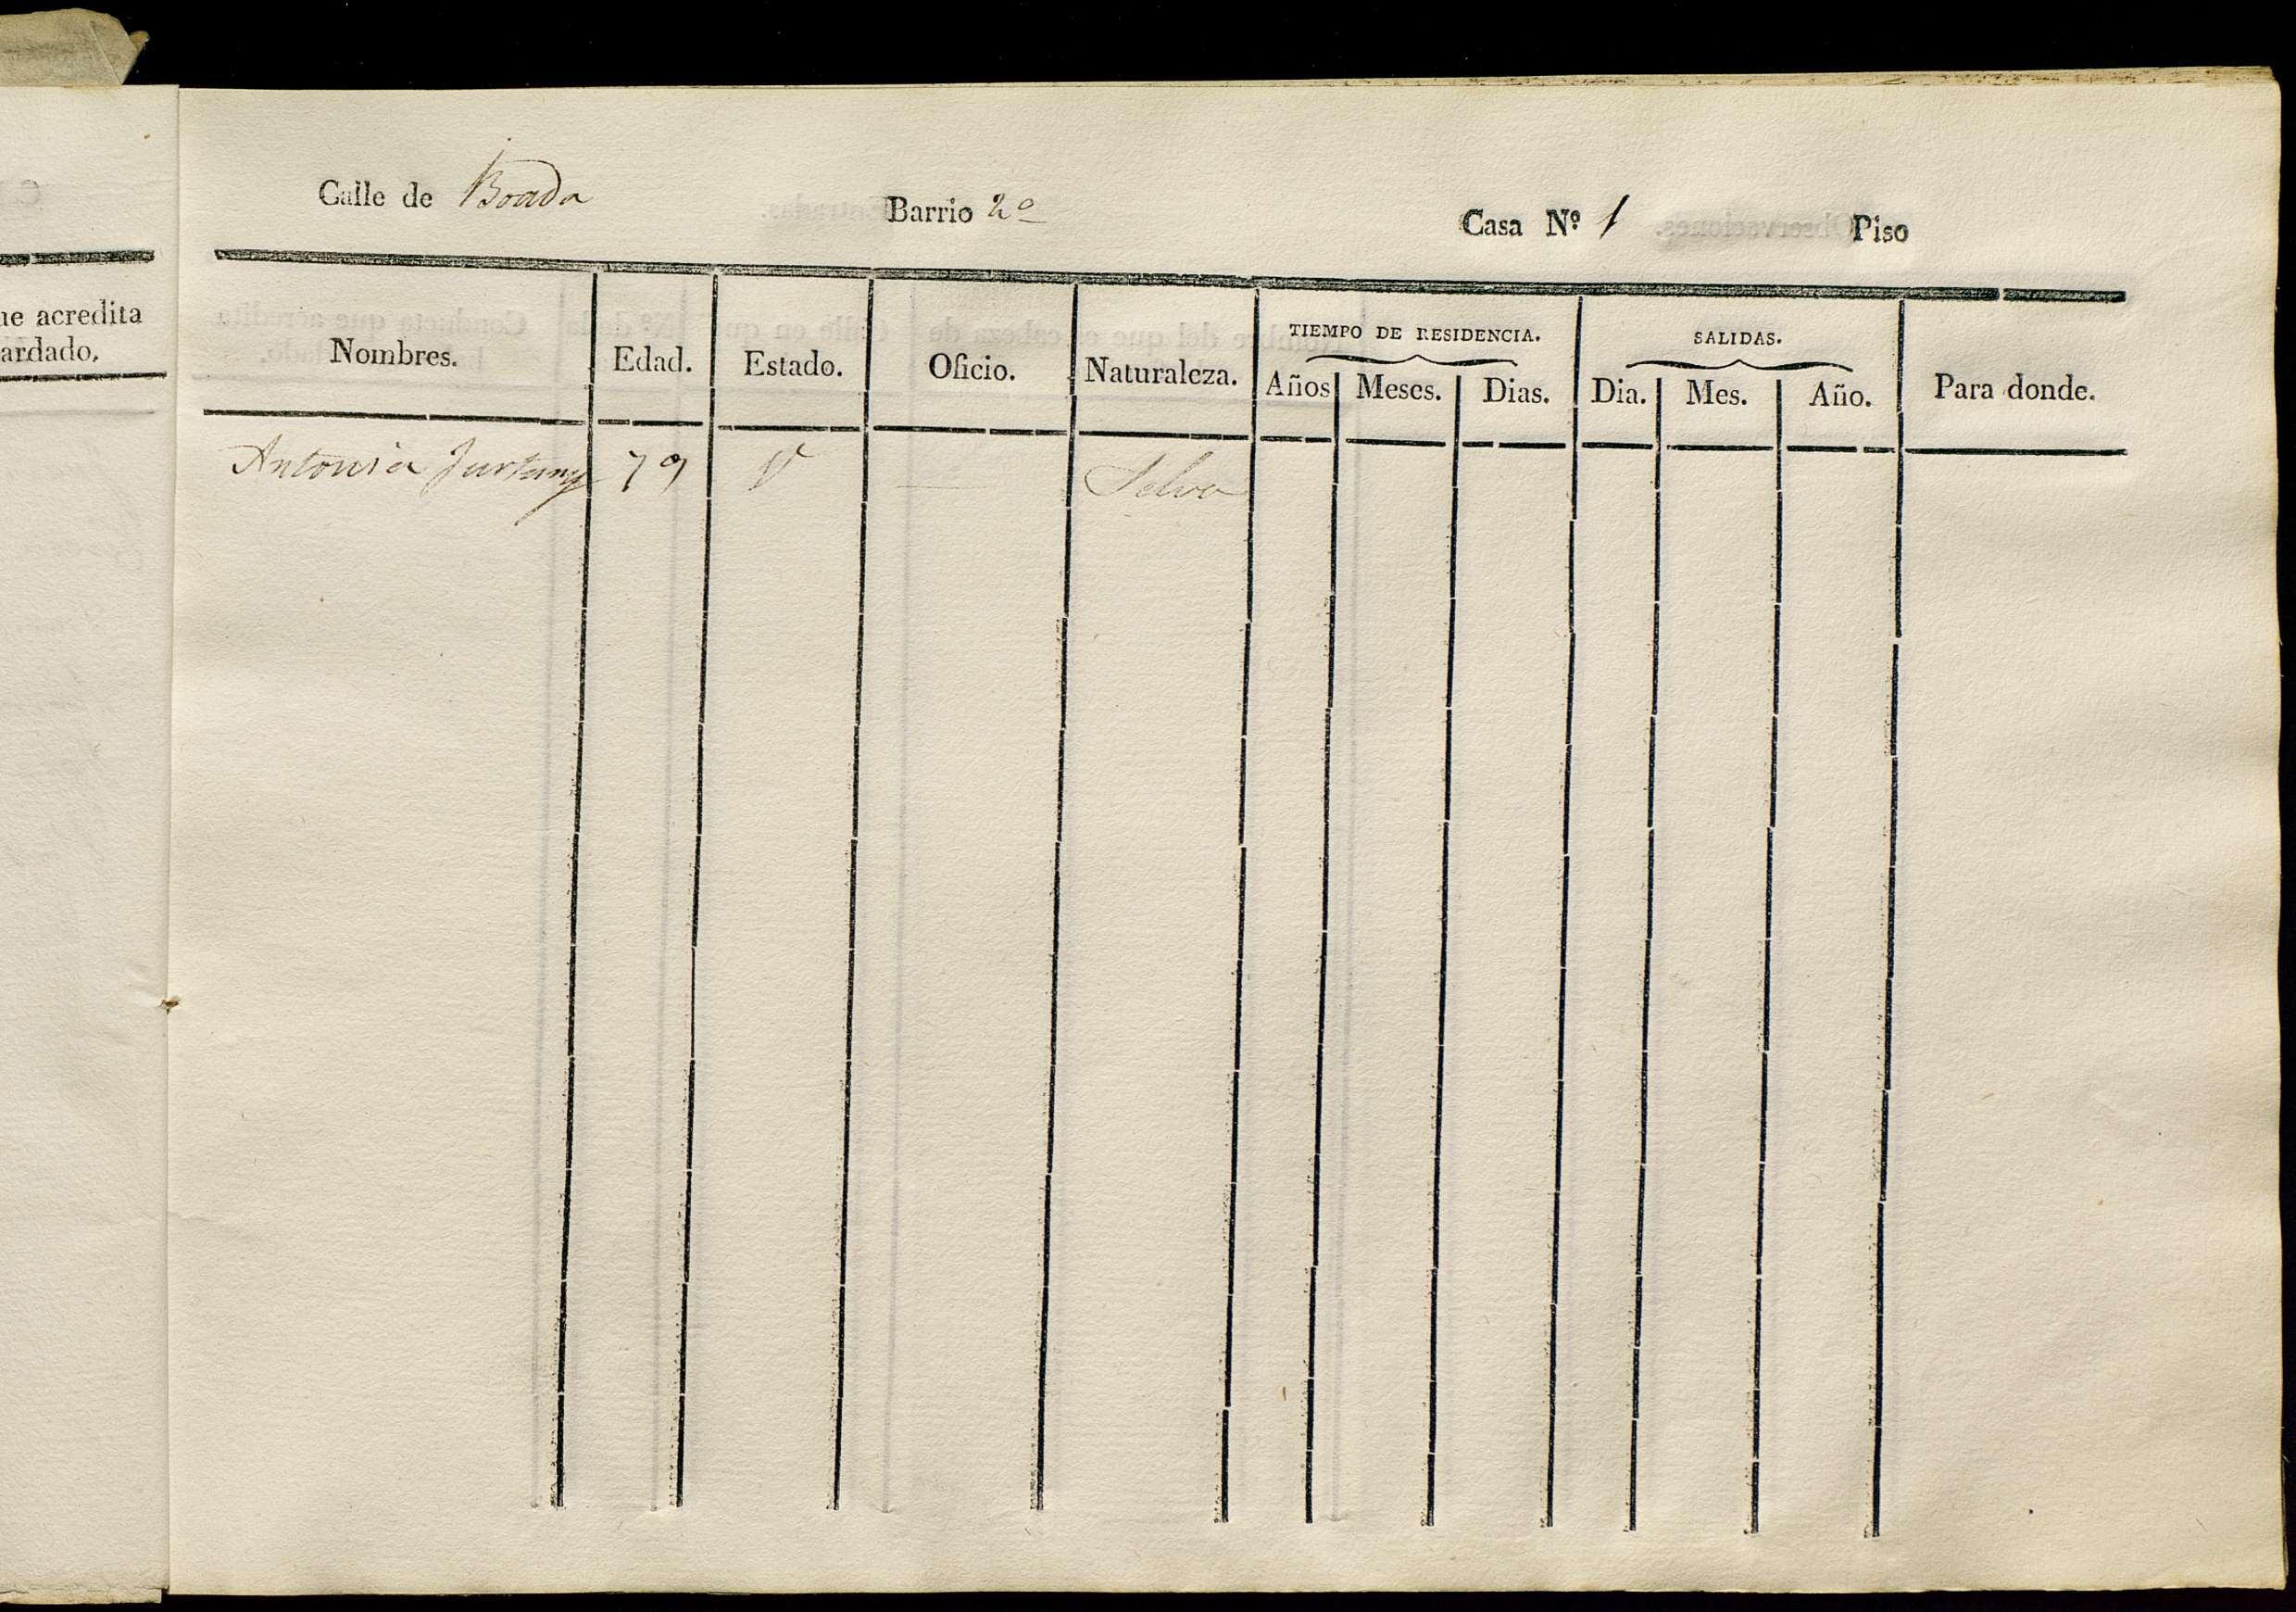 Calle de Boada Barrio 2º Casa Nº 1 Piso
ue acredita
ardado,
TIEMPO DE RESIDENCIA. SALIDAS.
Nombres. Edad. Estado. Oficio. Naturaleza. Años Meses. Dias. Dia. Mes. Año. Para donde.
Antonia Furtuny 79 V — Selva